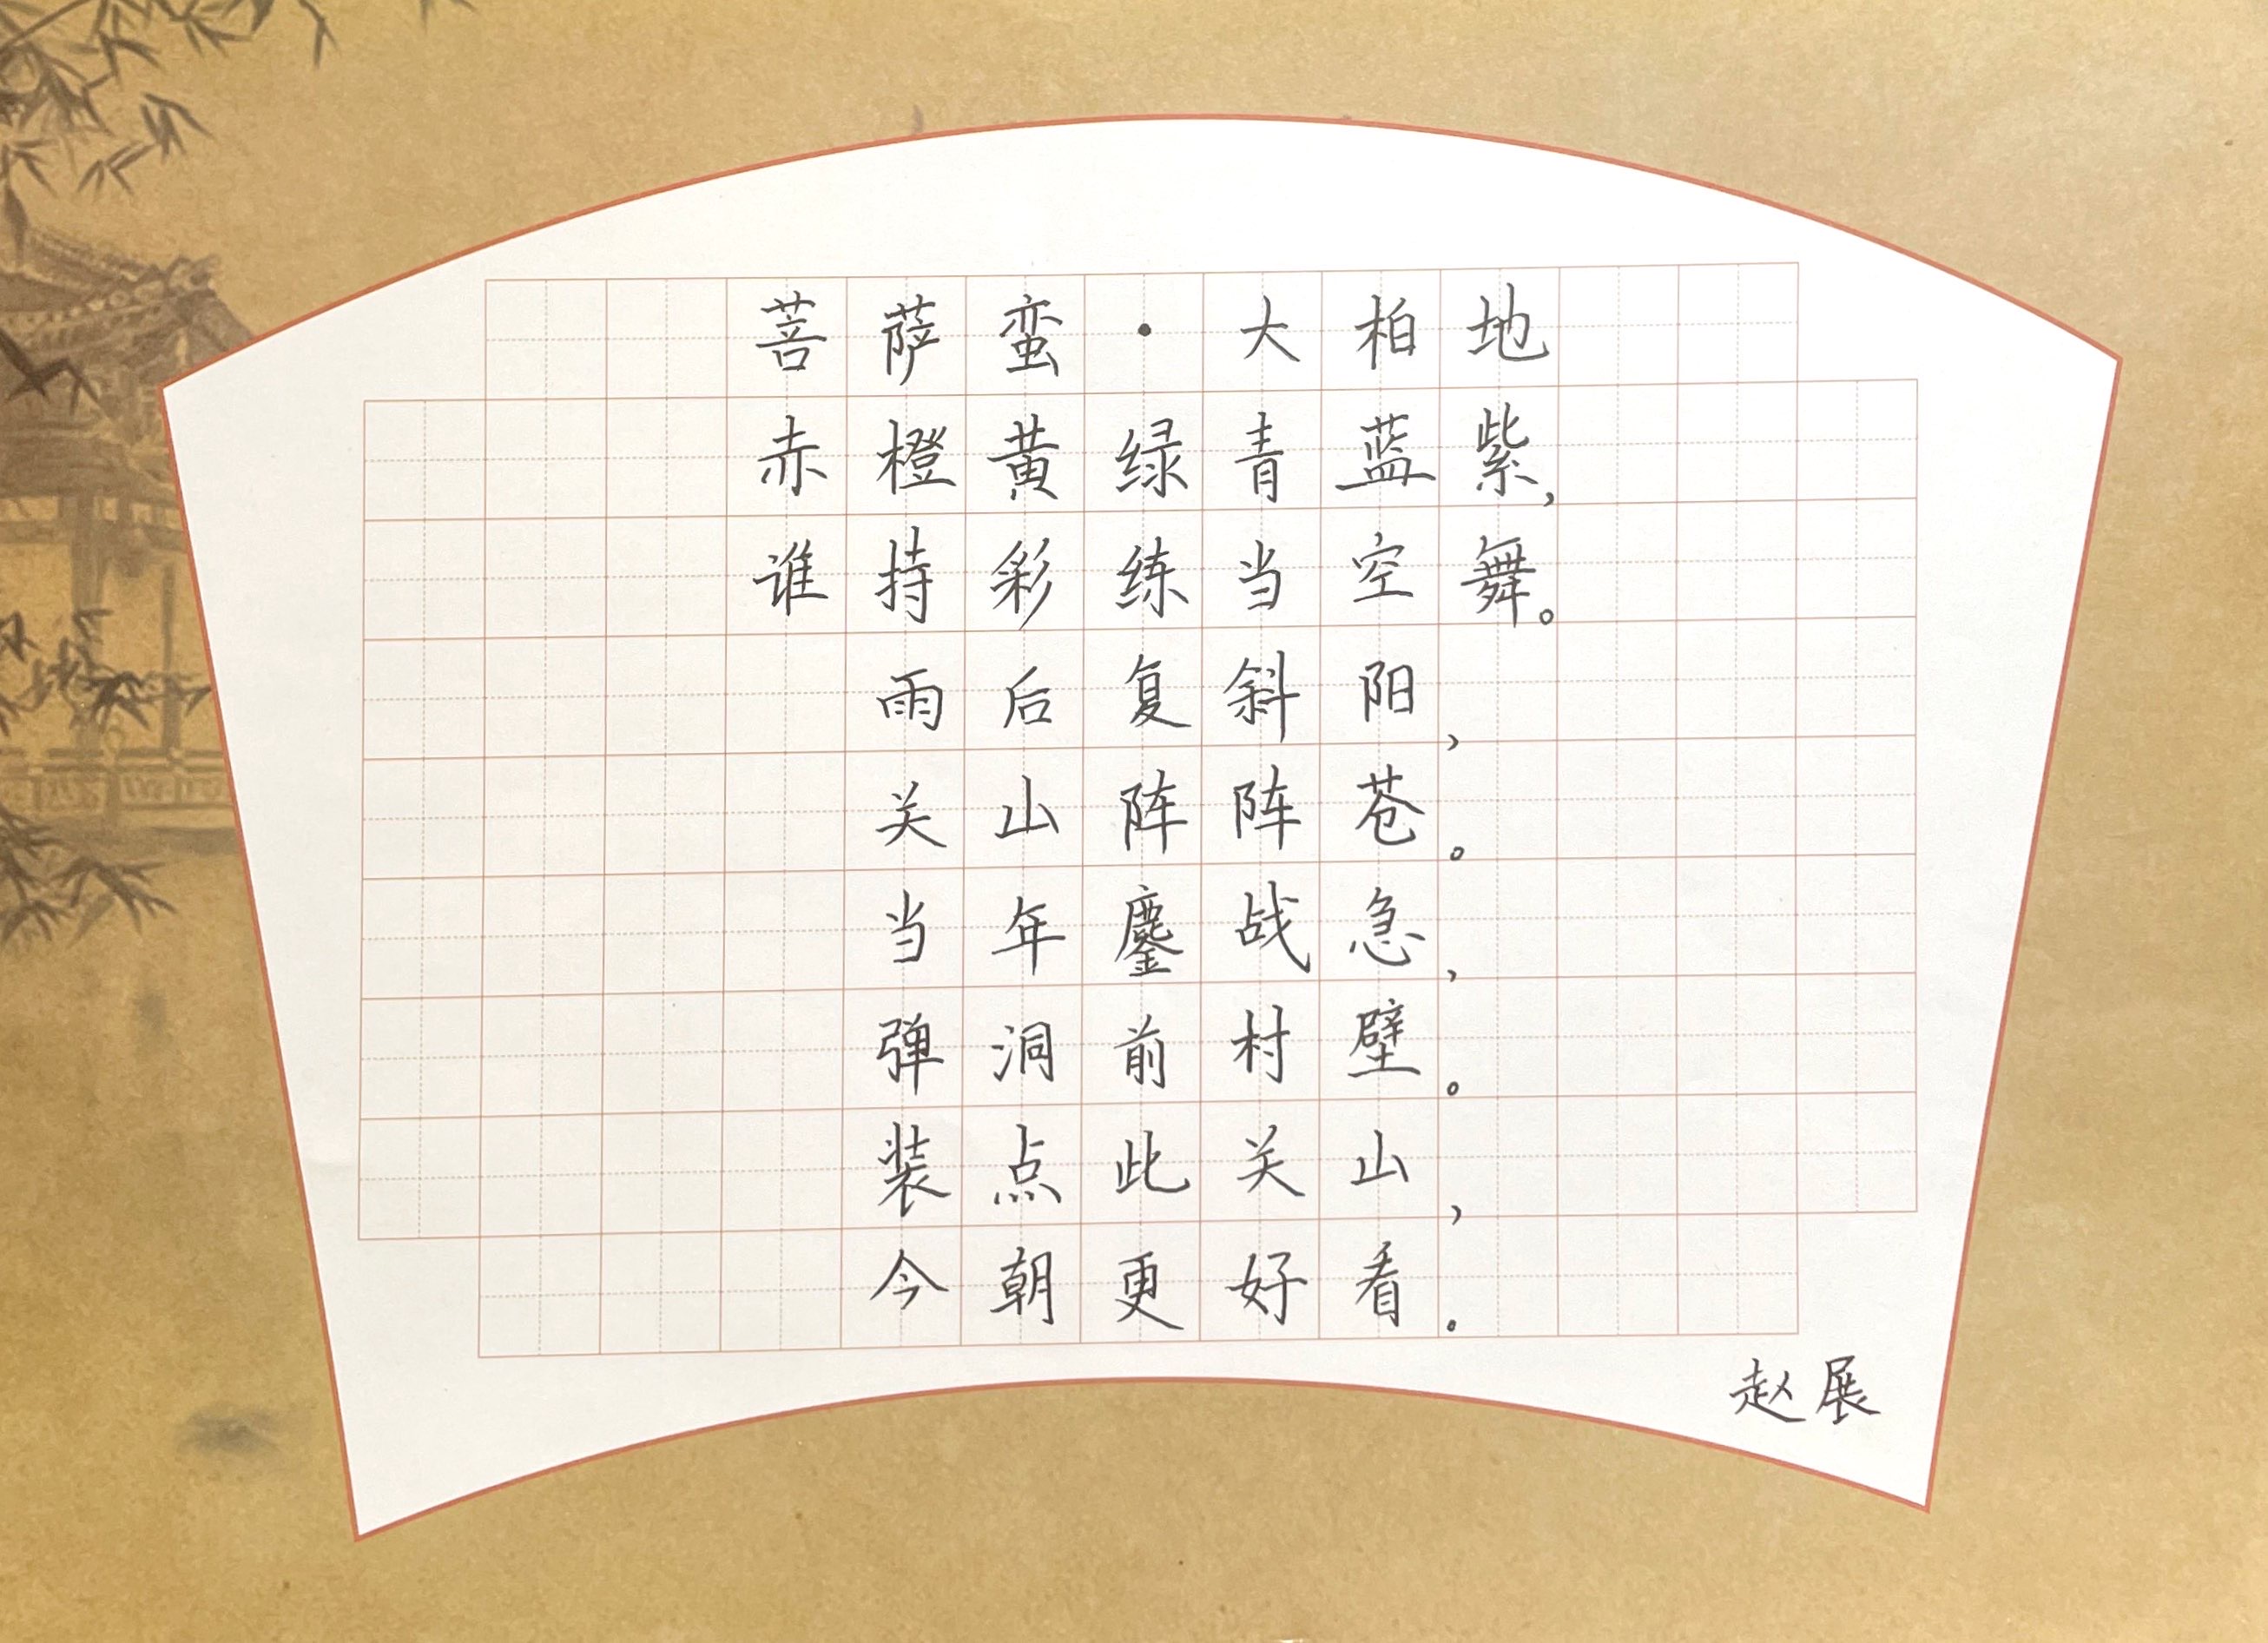 菩萨蛮·大柏地
赤橙黄绿青蓝紫，
谁持彩练当空舞。
雨后复斜阳，
关山阵阵苍。
当年鏖战急，
弹洞前村壁。
装点此关山，
今朝更好看。
赵展